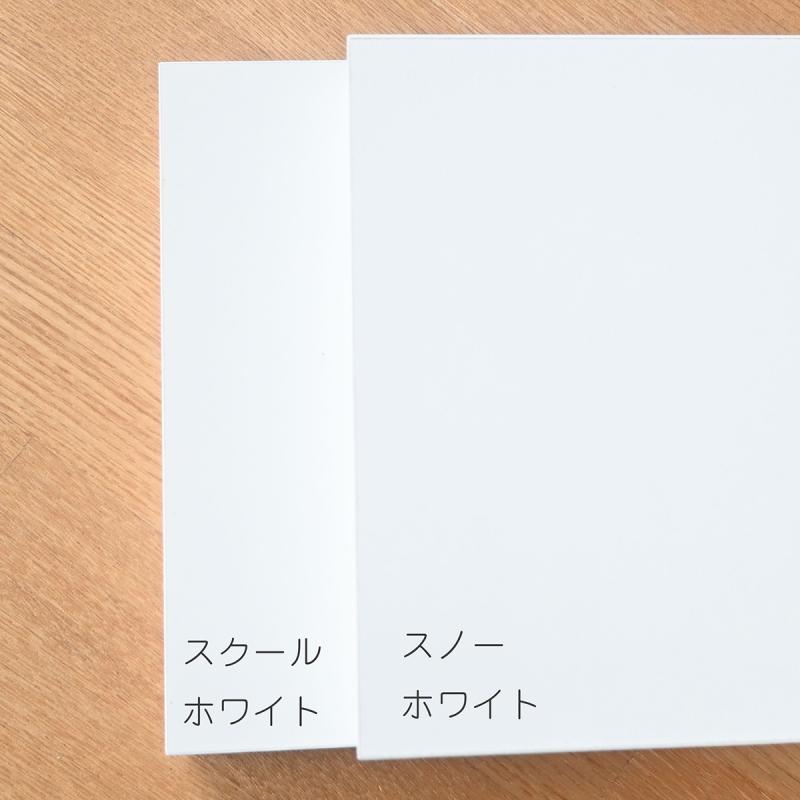 スクール
ホワイト
スノー
ホワイト